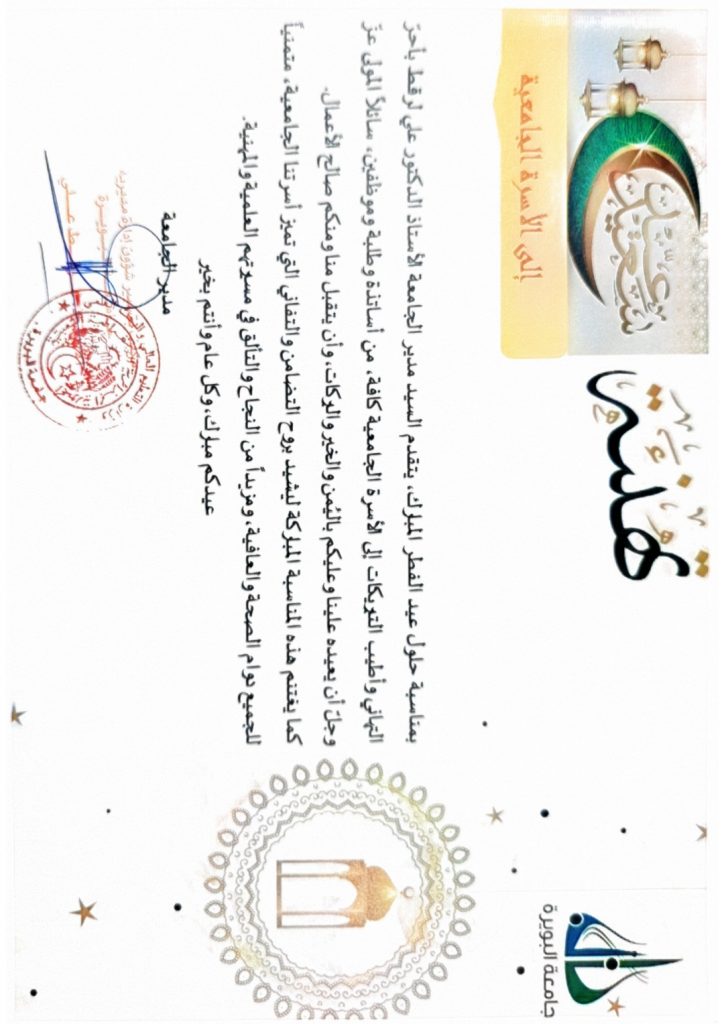 جامعة البويرة
تهنئة
عيد سعيد
إلى الأسرة الجامعية
بمناسبة حلول عيد الفطر المبارك، يتقدم السيد مدير الجامعة الأستاذ الدكتور علي لرقط بأحرّ
التهاني وأطيب التبريكات إلى الأسرة الجامعية كافة، من أساتذة وطلبة وموظفين، سائلاً المولى عزّ
وجلّ أن يعيده علينا وعليكم باليُمن والخير والبركات، وأن يتقبل منا ومنكم صالح الأعمال.
كما يغتنم هذه المناسبة المباركة ليشيد بروح التضامن والتفاني التي تميز أسرتنا الجامعية، متمنياً
للجميع دوام الصحة والعافية، ومزيداً من النجاح والتألق في مسيرتهم العلمية والمهنية.
عيدكم مبارك، وكل عام وأنتم بخير
مدير الجامعة
شؤون إدارة مديرية
جامعة البويرة